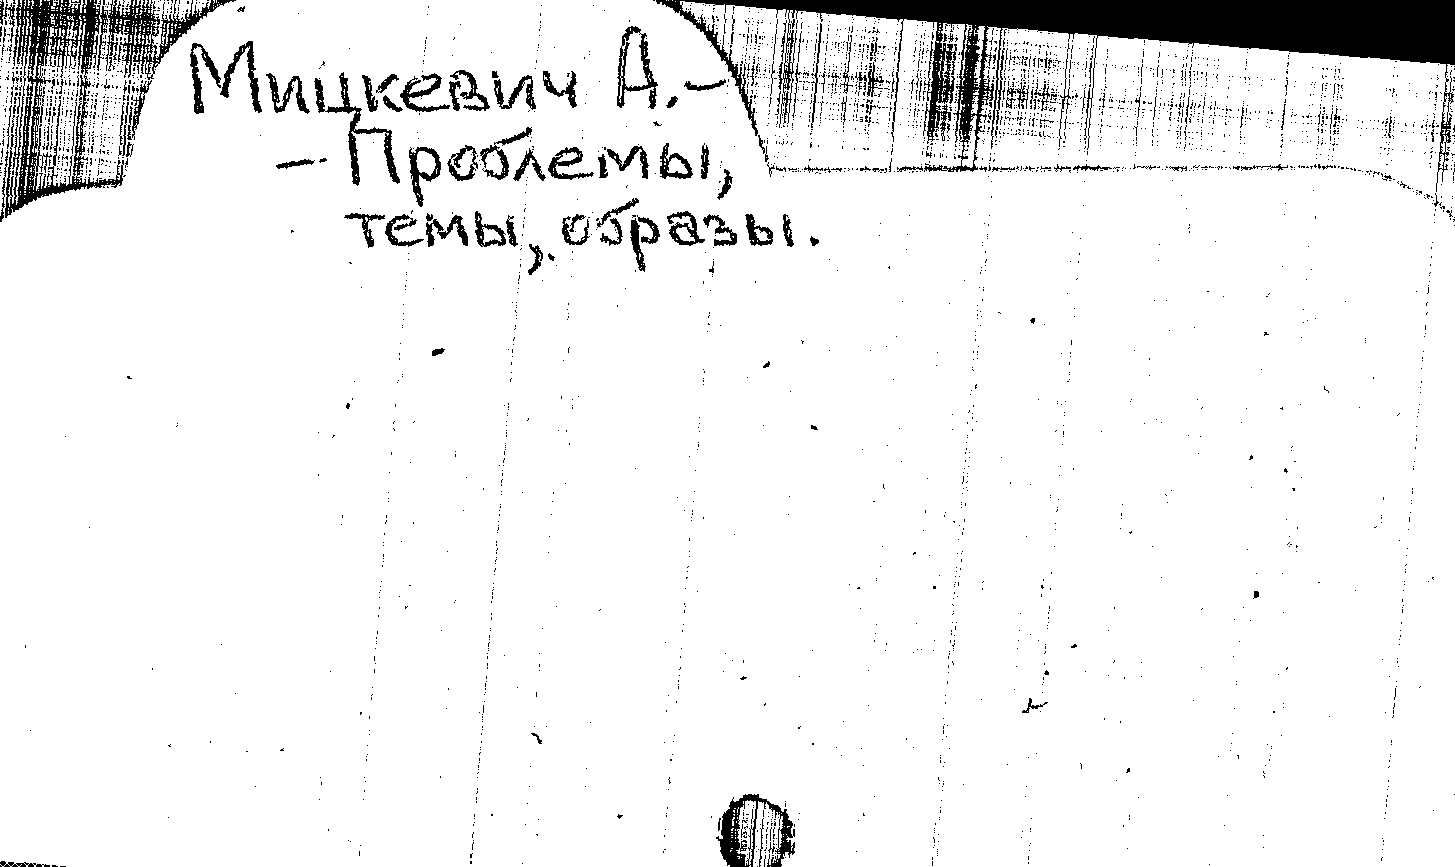 Мицкевич А.-
- Проблемы,
темы, образы.